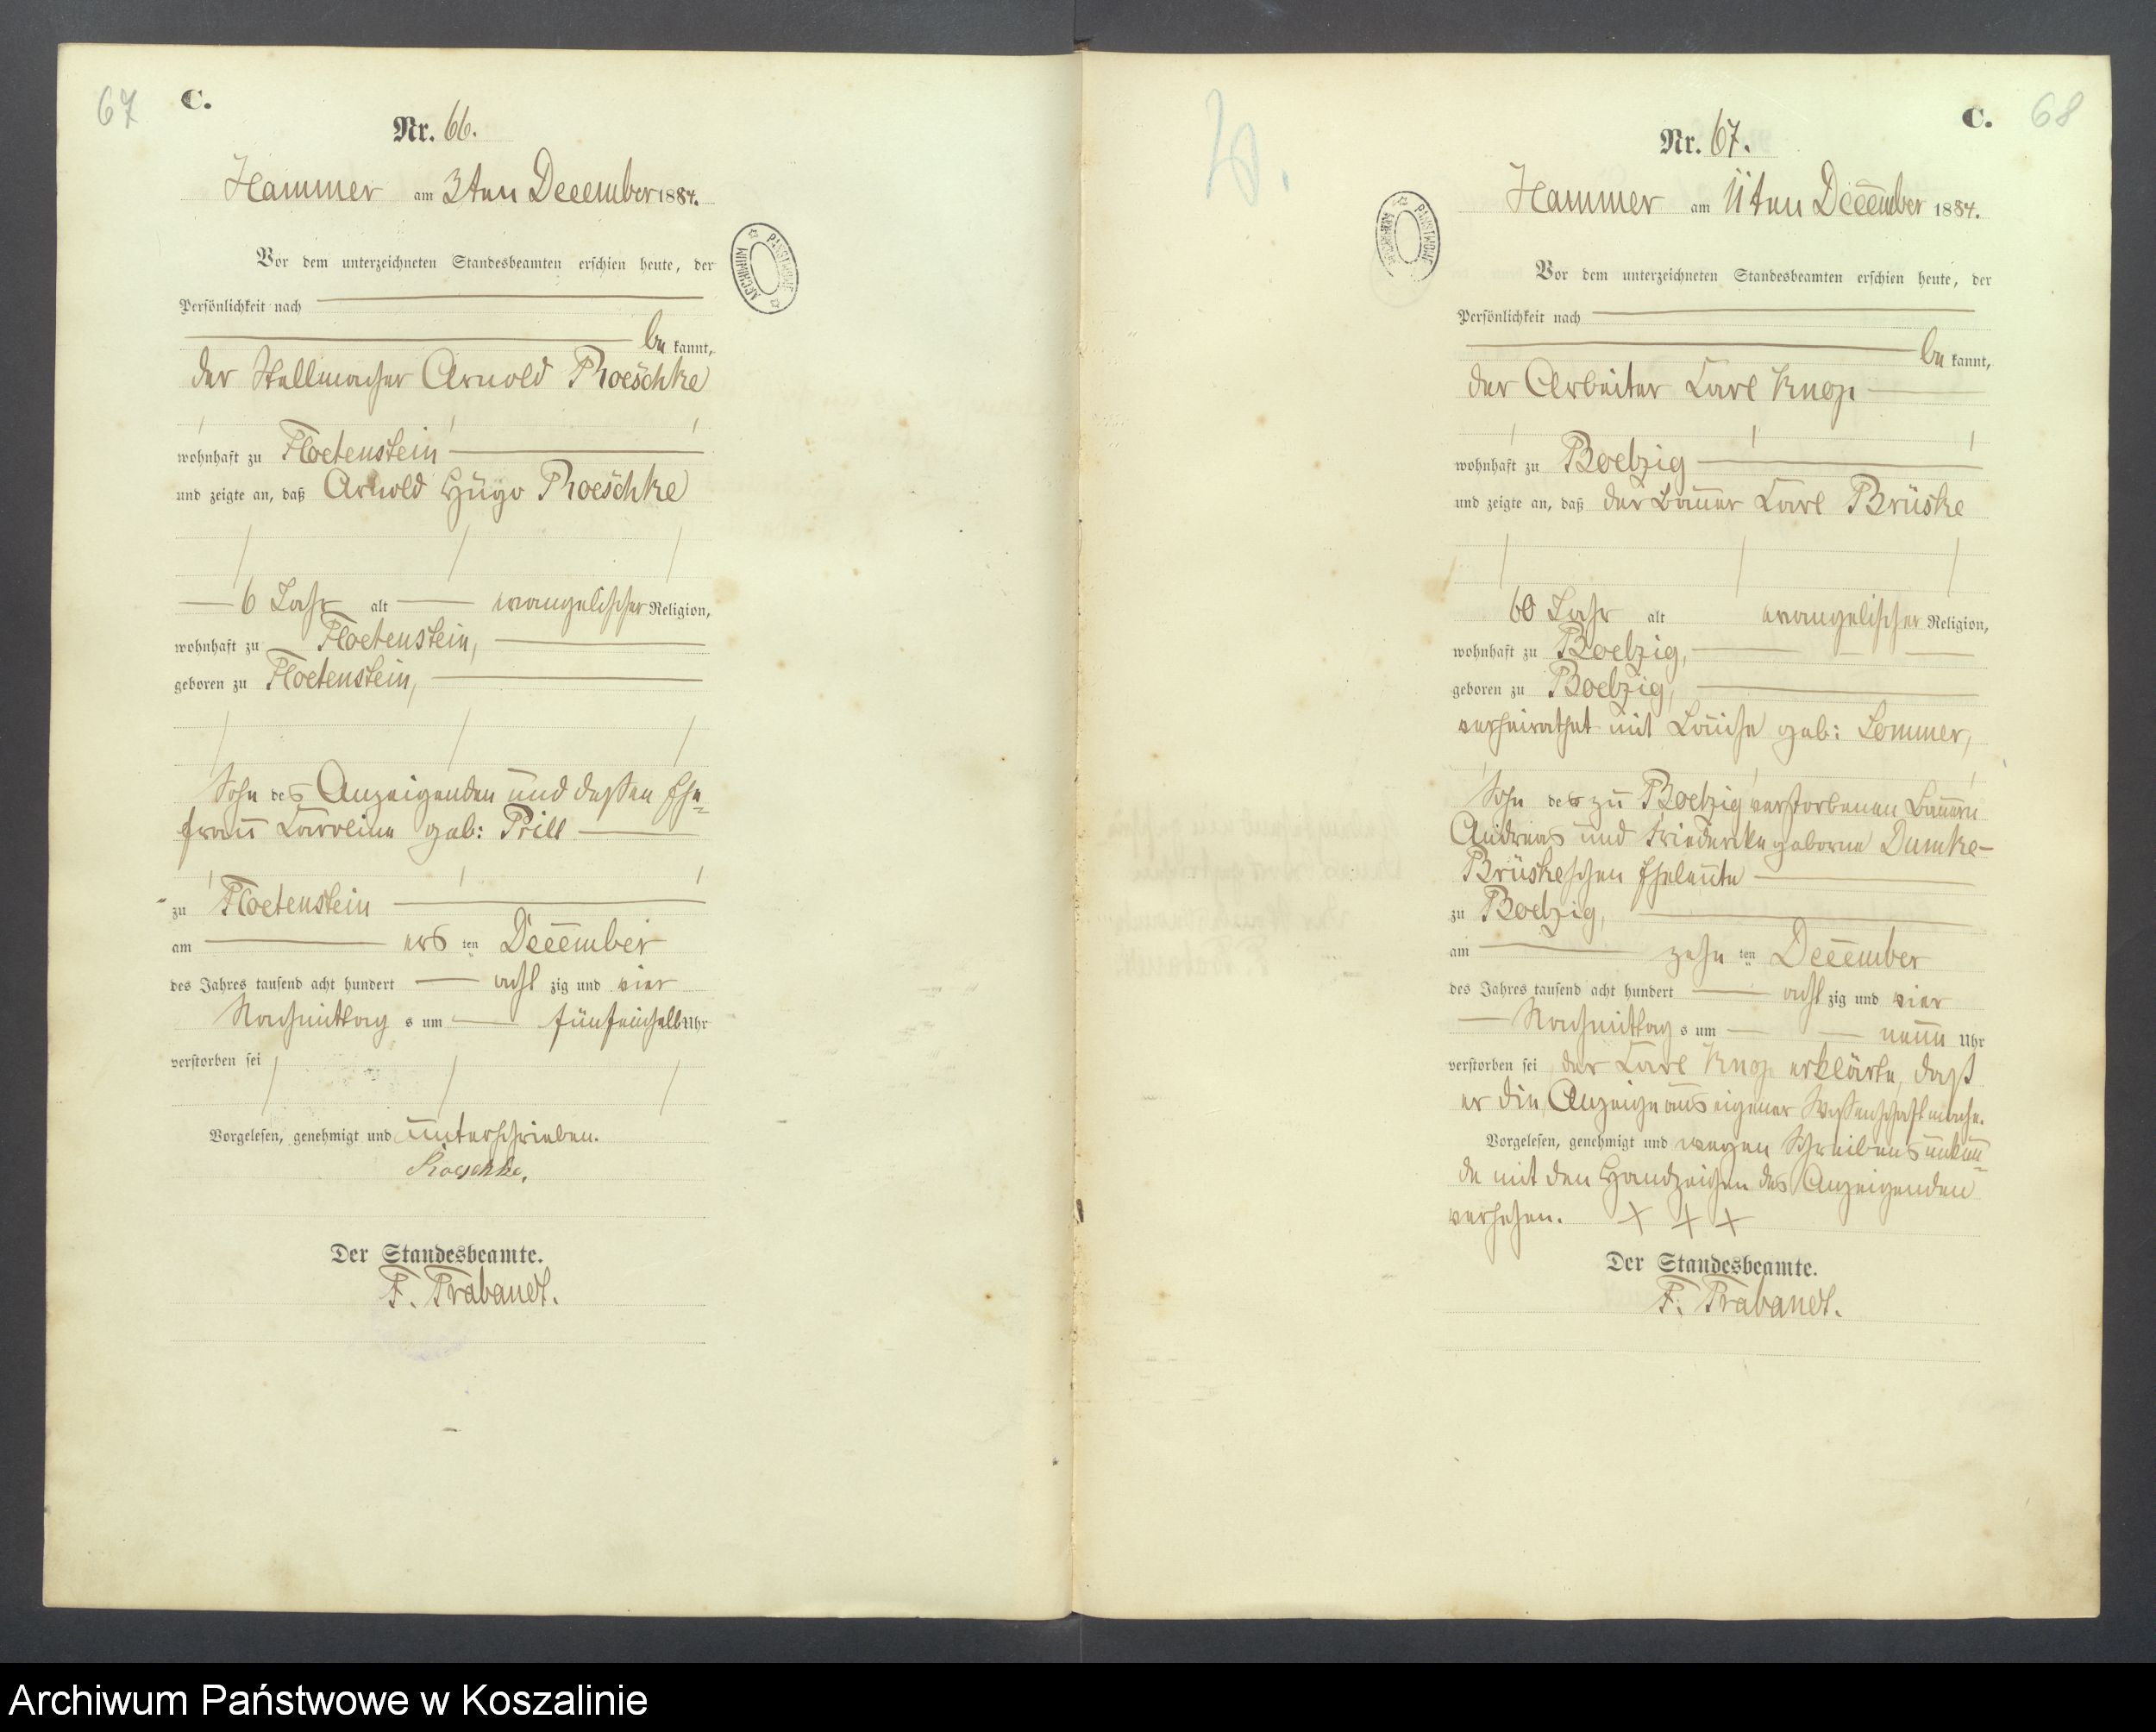 67
C.
Nr. 66.
Hammer am 3ten December 1884.
Vor dem unterzeichneten Standesbeamten erschien heute, der
Persönlichkeit nach
be kannt,
der Stellmacher Arnold Roeschke
wohnhaft zu Floetenstein
und zeigte an, daß Arnold Hugo Roeschke
6 Jahr alt evangelischer Religion,
wohnhaft zu Floetenstein,
geboren zu Floetenstein,
Sohn des Anzeigenden und dessen Ehe-
frau Caroline geb: Prill
zu Floetenstein
am ers ten December
des Jahres tausend acht hundert acht zig und vier
Nachmittag s um fünfeinhalb Uhr
verstorben sei
Vorgelesen, genehmigt und unterschrieben.
Roeschke.
Der Standesbeamte.
F. Trabandt.
ARCHIWUM PAŃSTWOWE
C.
68
Nr. 67.
Hammer am 11ten December 1884.
Vor dem unterzeichneten Standesbeamten erschien heute, der
Persönlichkeit nach
be kannt,
der Arbeiter Carl Knop
wohnhaft zu Boelzig
und zeigte an, daß der Bauer Carl Brüske
60 Jahr alt evangelischer Religion,
wohnhaft zu Boelzig,
geboren zu Boelzig,
verheirathet mit Louise geb: Sommer,
Sohn des zu Boelzig verstorbenen Bauern
Andreas und Friederike geborne Dumke-
Brüskeschen Eheleute
zu Boelzig,
am zehn ten December
des Jahres tausend acht hundert acht zig und vier
Nachmittag s um neun Uhr
verstorben sei der Carl Knop erklärte, daß
er die Anzeige aus eigener Wissenschaft mache.
Vorgelesen, genehmigt und wegen Schreibensunkun-
de mit den Handzeichen des Anzeigenden
versehen. + + +
Der Standesbeamte.
F. Trabandt.
ARCHIWUM PAŃSTWOWE
Archiwum Państwowe w Koszalinie